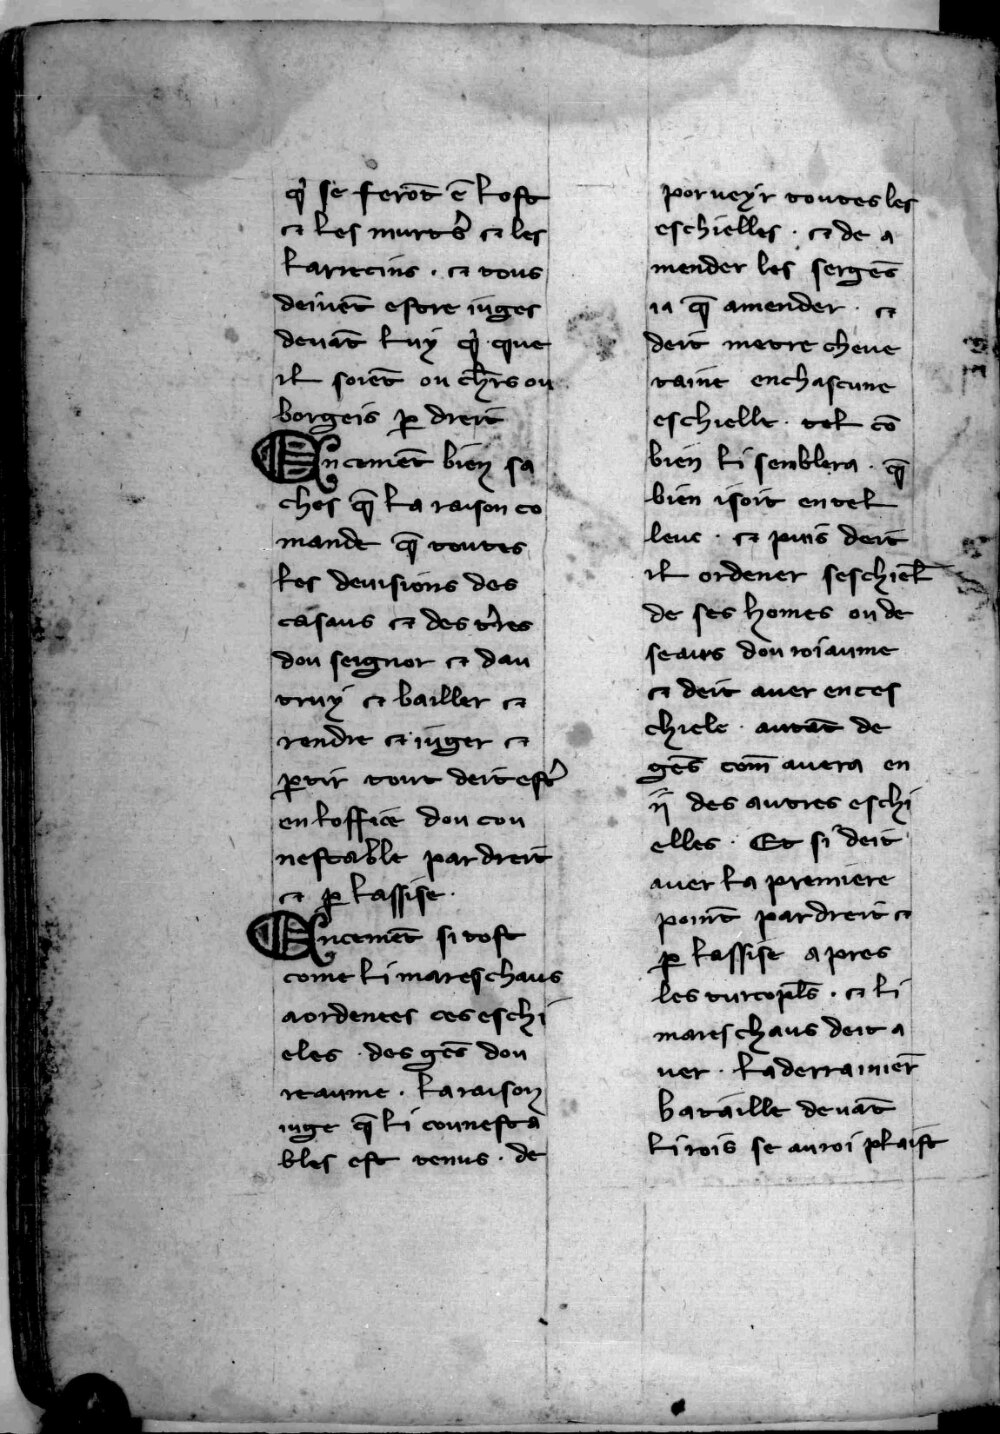 q̇ se ferõt ẽ lost
⁊ les murtrẽs ⁊ les
larrecins · ⁊ tous
deivẽt estre iuges
devãt luy q̇ que
il soiẽt ou chr̃s ou
borgeis ꝑ dreit
Encemẽt bien sa
ches q̃ la raison co
mande q̃ toutes
les devisions des
casaus ⁊ des tr̃es
dou seignor ⁊ dau
truy ⁊ bailler ⁊
rendre ⁊ iuger ⁊
ꝑtir tout deit estr̃
en loffice dou cou
nestable par dreit
⁊ ꝑ lassise ·
Encemẽt si tost
come li mareschaus
a ordenees ces eschi
eles · des gẽs dou
reaume · la raison
iuge q̃ li counesta
bles est tenus · de
porveyr toutes les
eschielles · ⁊ de a
mender les sergẽs
q̃ amender · ⁊
deit metre cheve
taine en chascune
eschielle · tel cõ
bien li semblera · q̃
bien i soit en tel
leuc · ⁊ puis deit
il ordener seschiel̃
de ses homes ou de
seaus dou roiaume
⁊ deit aver en ces
chiele · autãt de
gẽs com̃ avera en
ij des autres eschi
elles · Et si deit
aver la premiere
point par dreit ⁊
ꝑ lassise apres
les turcopl̃s · ⁊ li
mareschaus deit a
ver · la derrainier̃
bataille devãt
li rois se au roi plaist